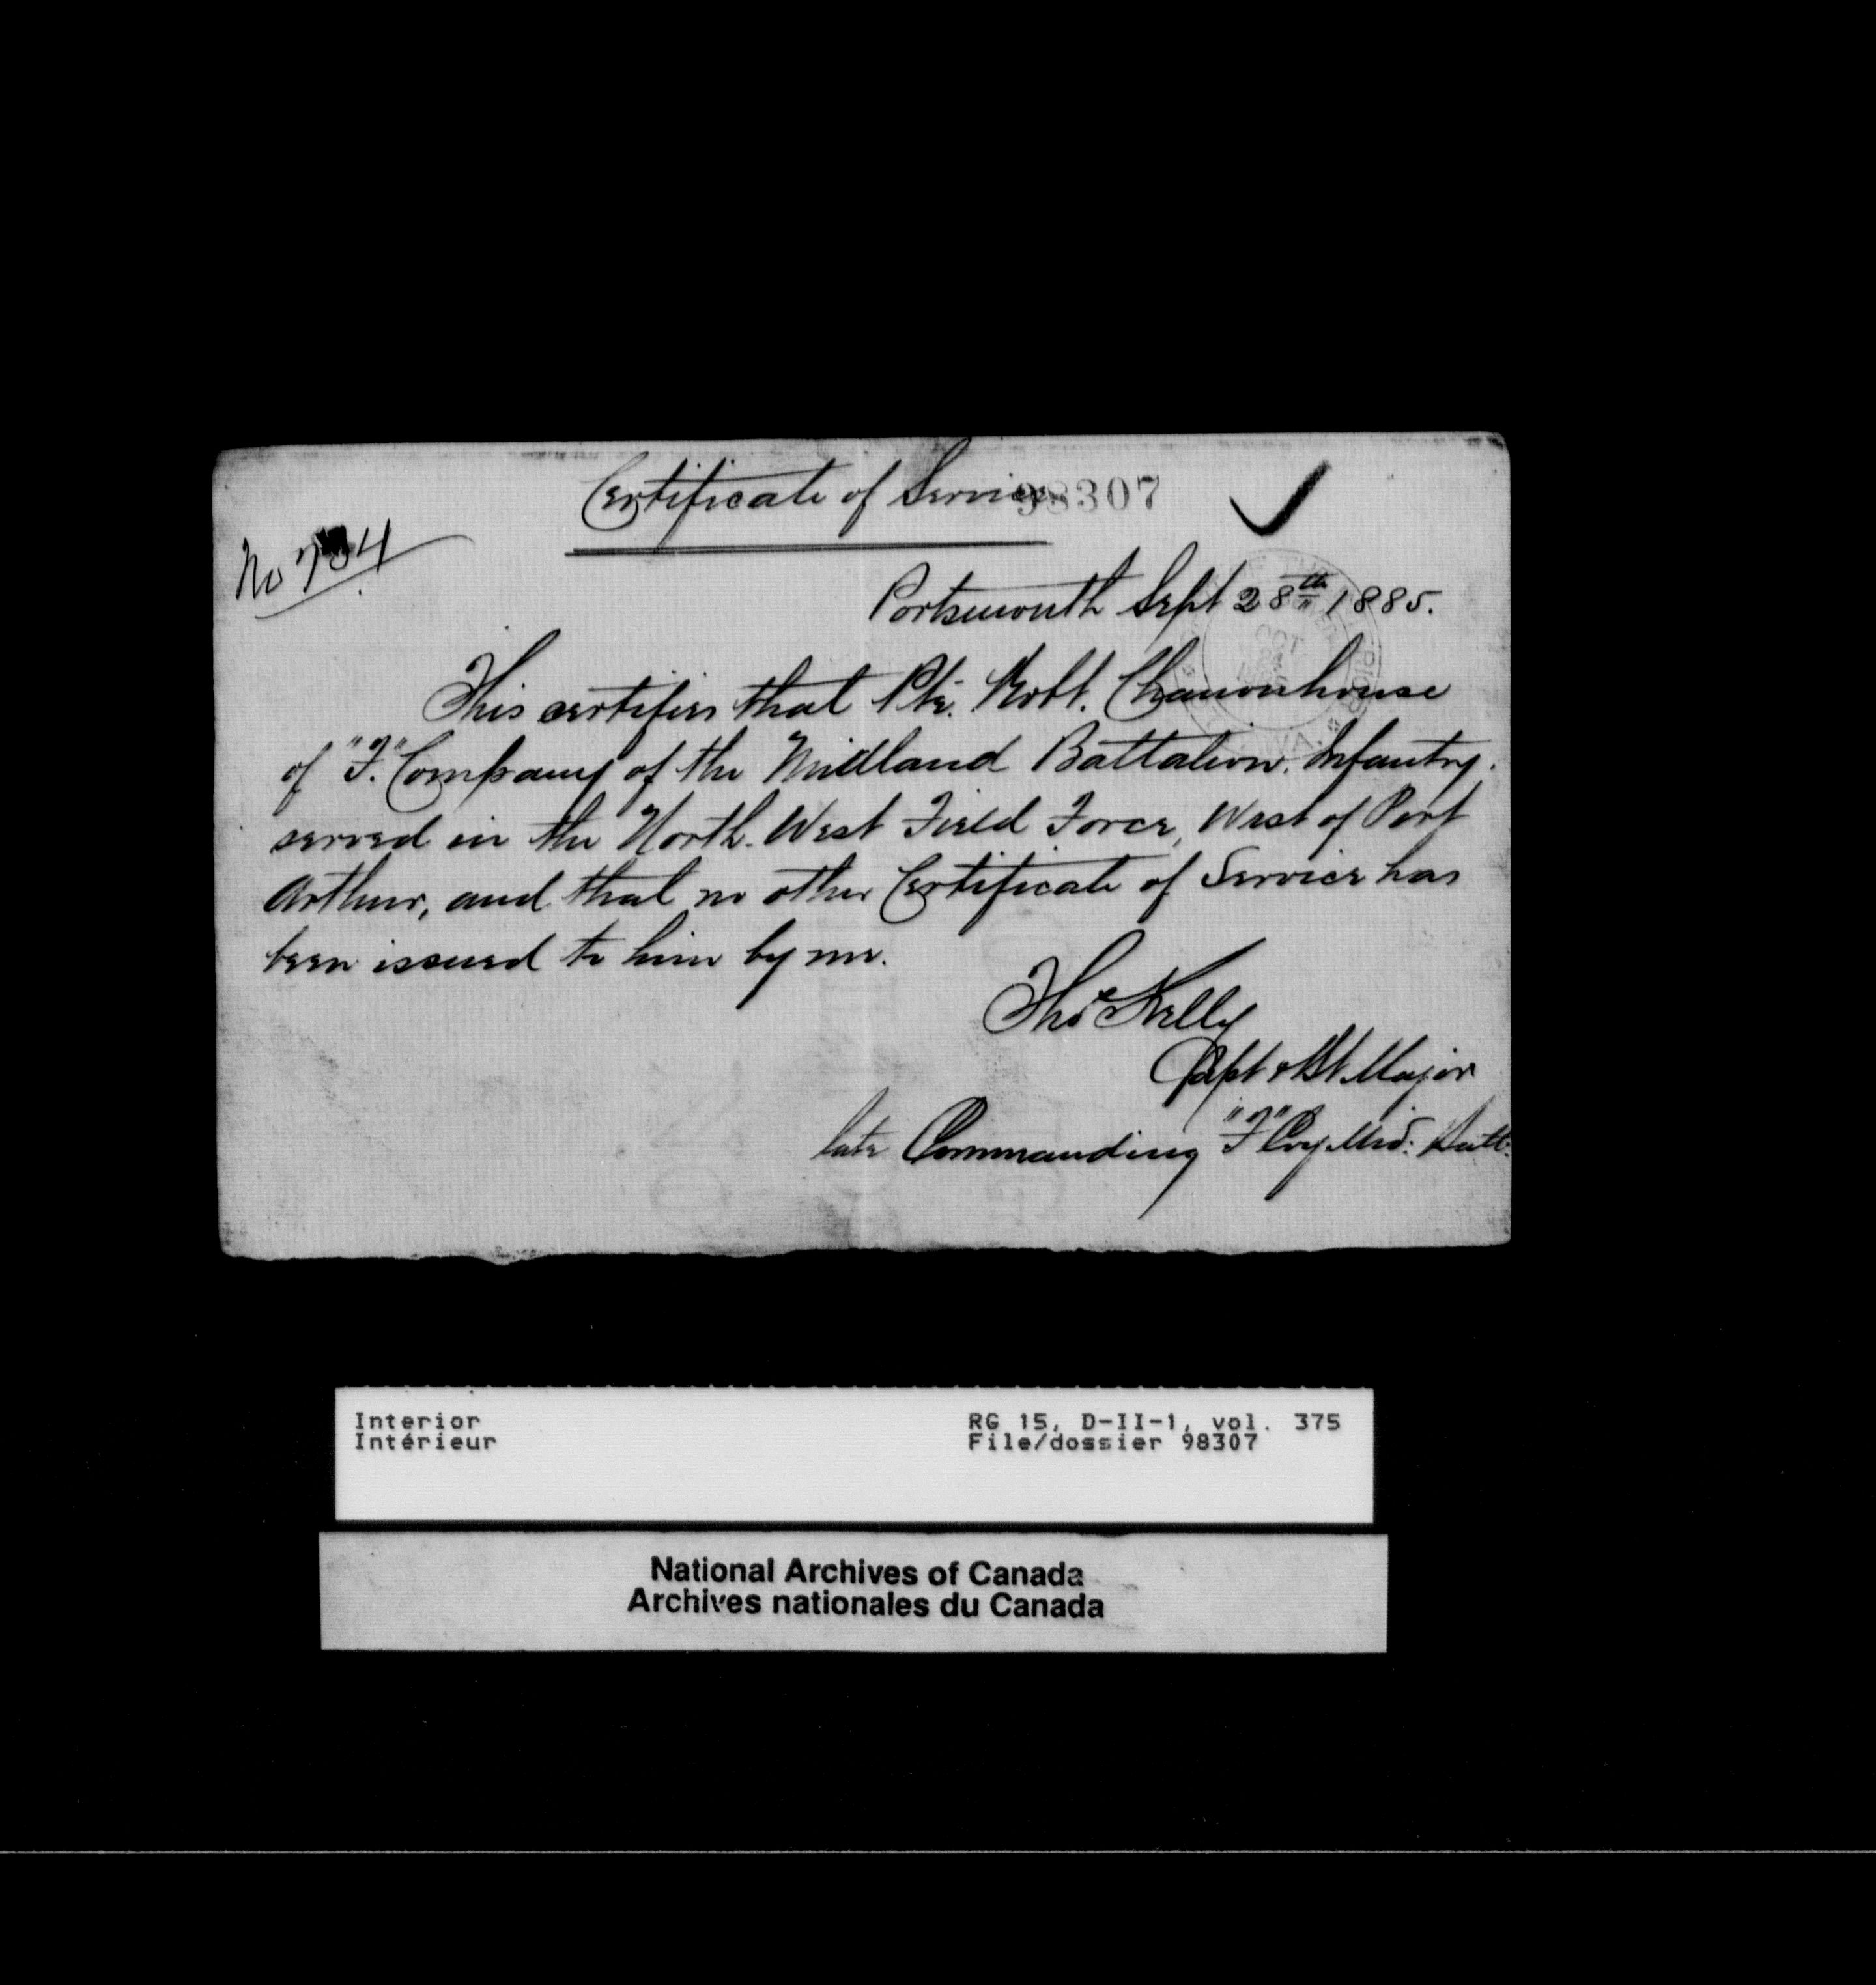 Certificate of Service
98307
No 734
Portsmouth Sept 28th 1885.
This certifies that Pte. Robt. Chanonhouse
of "F." Company of the Midland Battalion. Infantry.
served in the North-West Field Force, West of Port
Arthur, and that no other Certificate of Service has
been issued to him by me.
Thos Kelly
Capt & Bt. Major
late Commanding "F" Coy Mid: Batt:
Interior
Intérieur
RG 15, D-II-1, vol. 375
File/dossier 98307
National Archives of Canada
Archives nationales du Canada